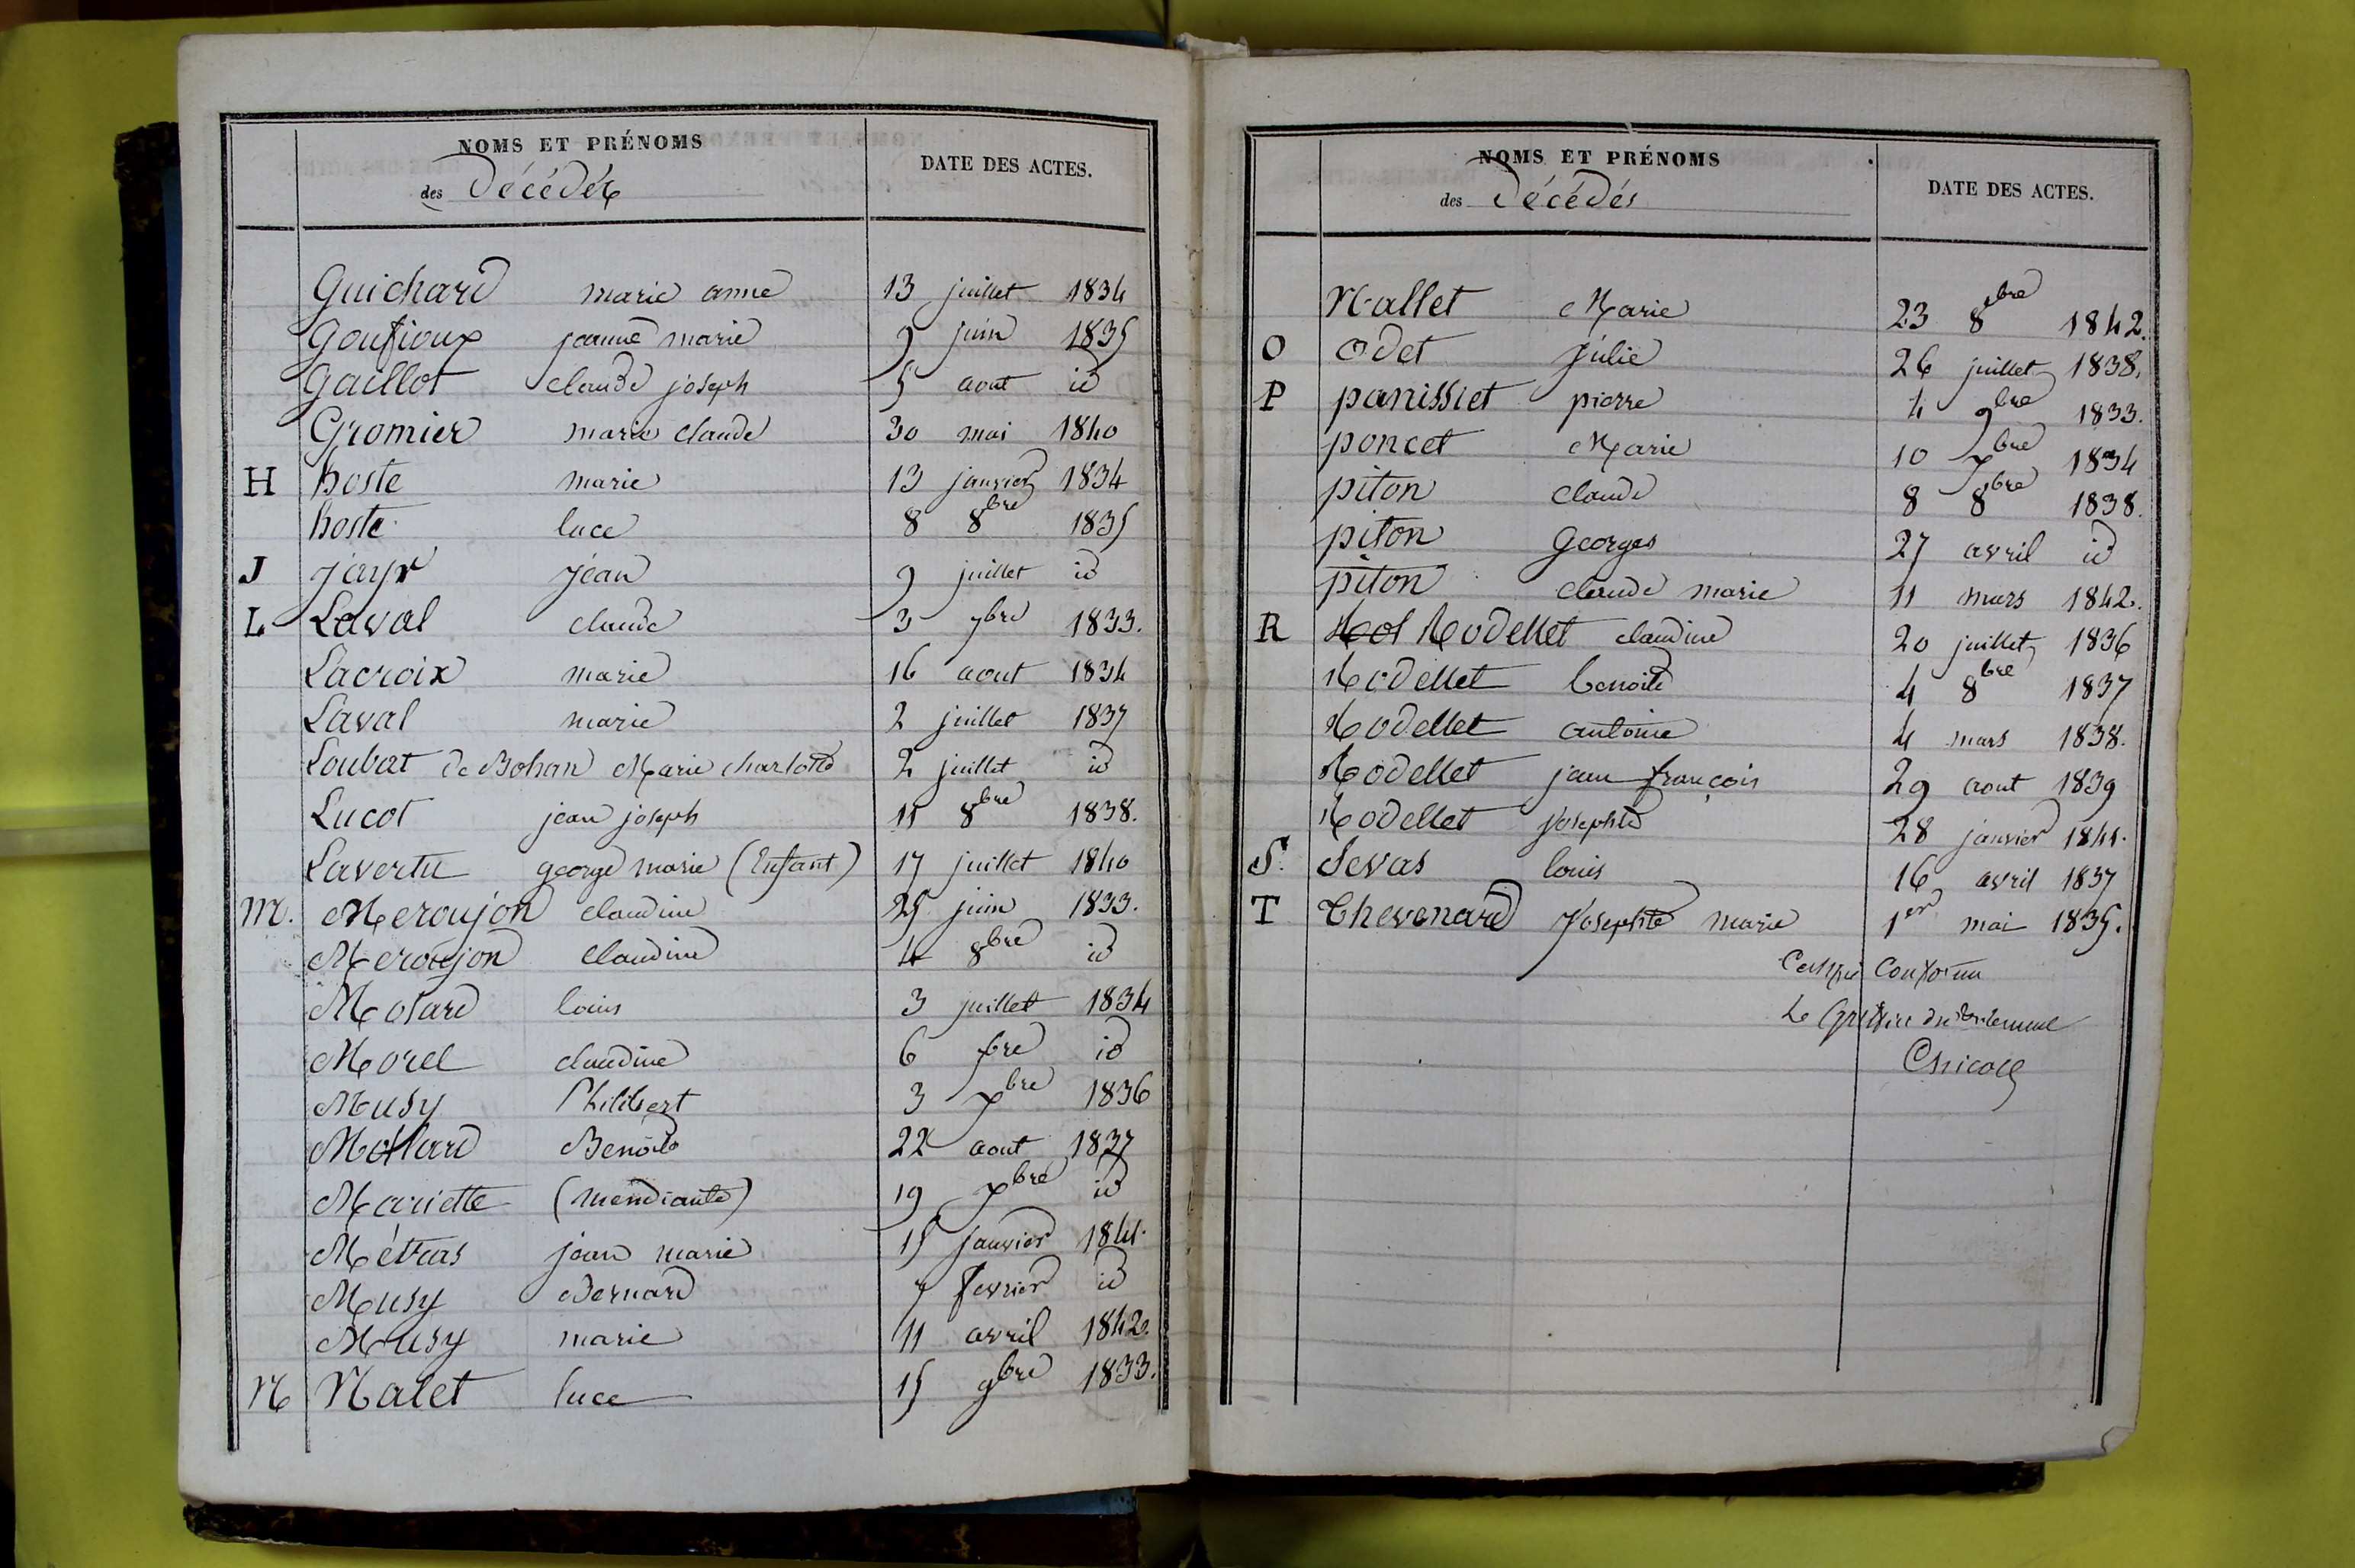 NOMS ET PRÉNOMS
des Décédés
DATE DES ACTES.
Guichard marie anne 13 juillet 1834
Goufioux jeanne marie 9 juin 1835
Gaillot claude joseph 5 aout id
Gromier marie claude 30 mai 1840
H hoste marie 13 janvier 1834
hoste luce 8 8bre 1835
J jayr jean 9 juillet id
L Laval claude 3 7bre 1833.
Lacroix marie 16 aout 1834
Laval marie 2 juillet 1837
Loubat de Bohan Marie charlotte 2 juillet id
Lucot jean joseph 11 8bre 1838.
Lavertu george marie (Enfant) 17 juillet 1840
M. Meroujon claudine 25 juin 1833.
Meroujon claudine 4 8bre id
Molard louis 3 juillet 1834
Morel claudine 6 bre id
Musy Philibert 3 7bre 1836
Mollard Benoite 22 aout 1837
Mariette (mendiante) 19 7bre id
Métras jean marie 15 janvier 1841.
Musy Bernard 7 fevrier id
Musy marie 11 avril 1842.
N Nalet luce 15 9bre 1833.
NOMS ET PRÉNOMS
des Décédés
DATE DES ACTES.
Nallet Marie 23 8bre 1842.
O Odet julie 26 juillet 1838.
P panissiet pierre 4 9bre 1833.
poncet Marie 10 7bre 1834
piton claude 8 8bre 1838.
piton Georges 27 avril id
piton claude marie 11 mars 1842.
R Rol Rodellet claudine 20 juillet 1836
Rodellet benoite 4 8bre 1837
Rodellet antoine 4 mars 1838.
Rodellet jean françois 29 aout 1839
Rodellet josephte 28 janvier 1841.
S. Sevas louis 16 avril 1837
T Thevenard josephte marie 1er mai 1835.
Certifié Conforme
Le Greffier du